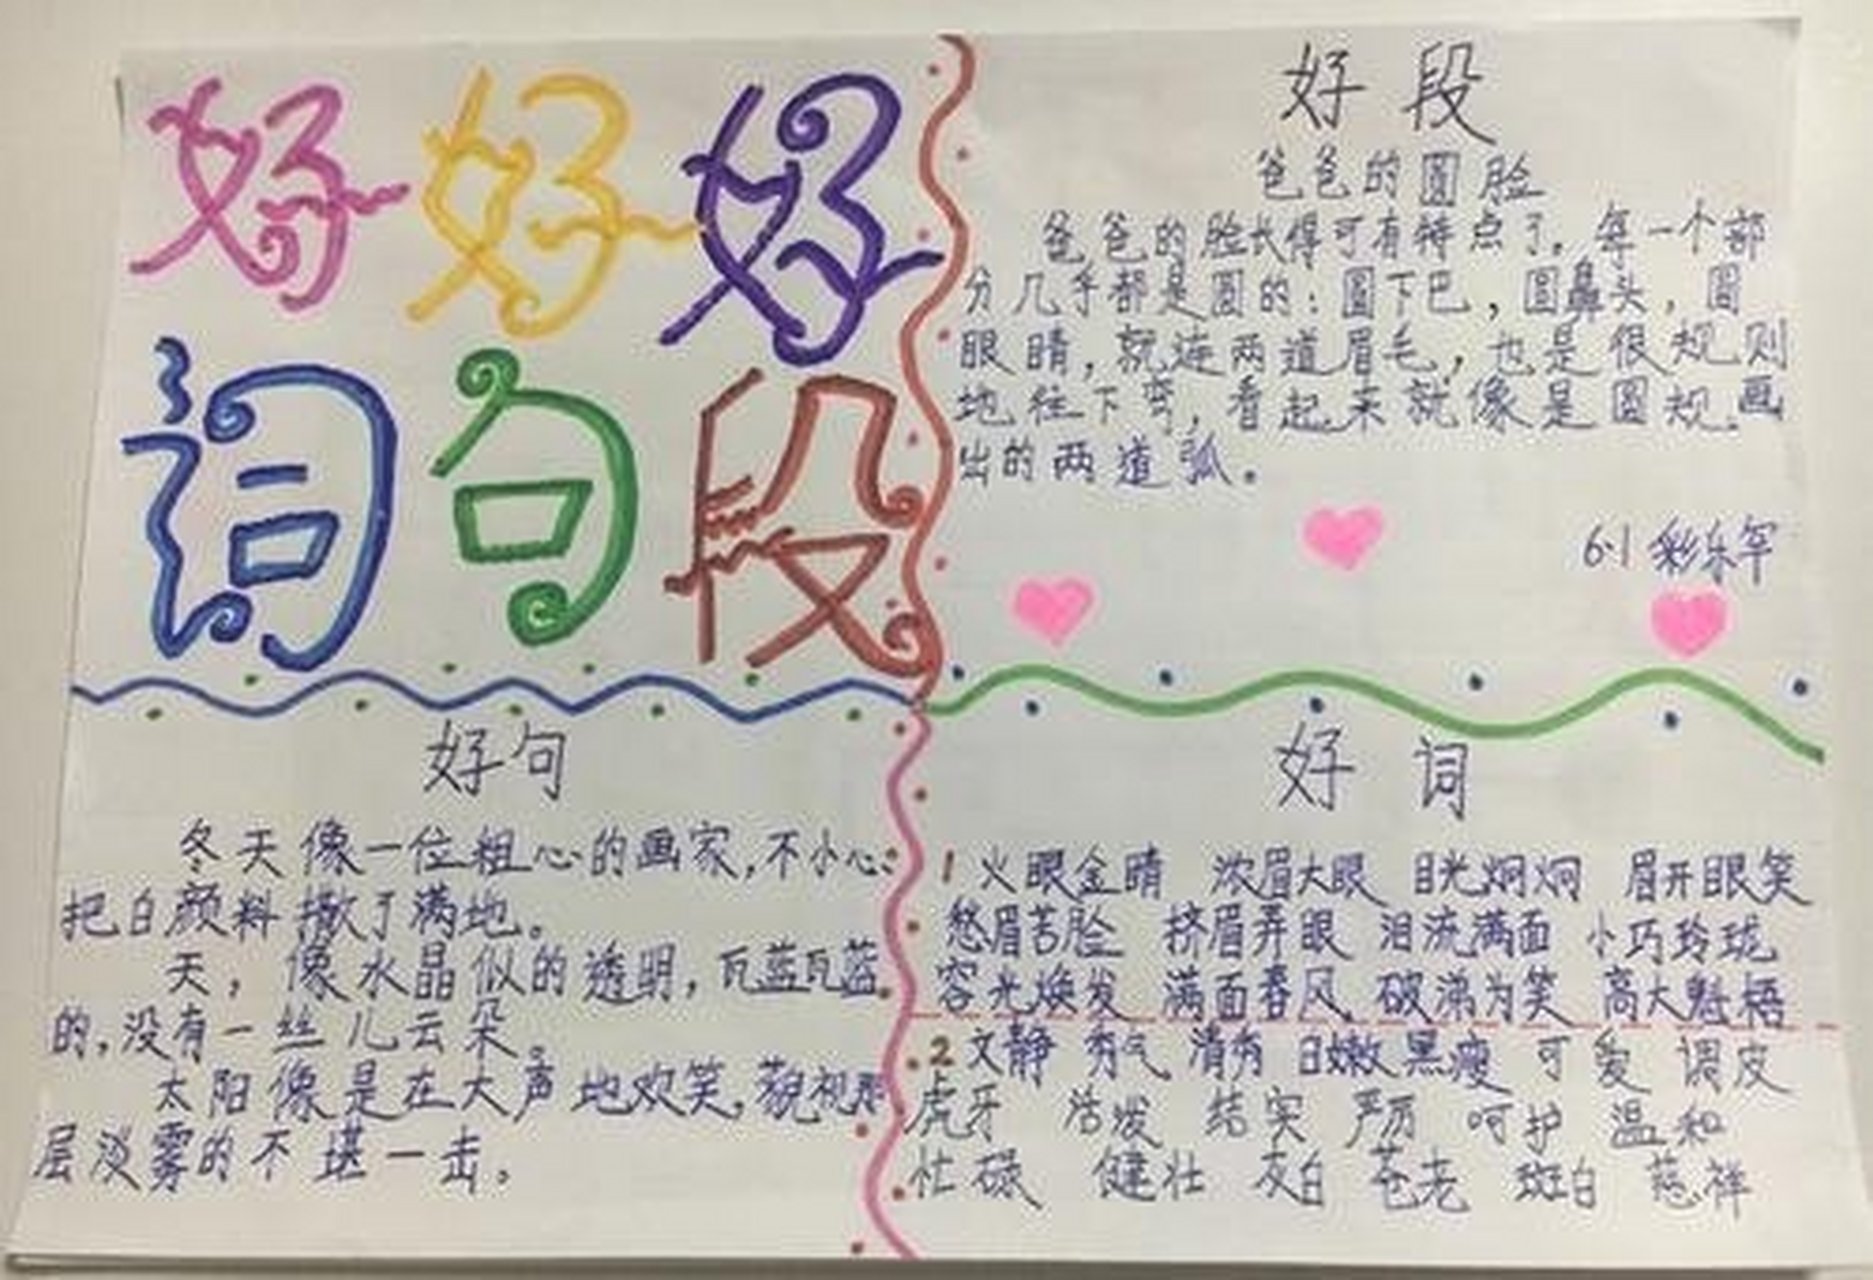 好好好
词句段
好段
爸爸的圆脸
爸爸的脸长得可有特点了。每一个部
分几乎都是圆的:圆下巴,圆鼻头,圆
眼睛,就连两道眉毛,也是很规则
地往下弯,看起来就像是圆规画
出的两道弧。
6.1
好句
冬天像一位粗心的画家,不小心
把白颜料撒了满地。
天,像水晶似的透明,瓦蓝瓦蓝
的,没有一丝儿云朵。
太阳像是在大声地欢笑,藐视那
层淡雾的不堪一击。
好词
1 火眼金睛 浓眉大眼 目光炯炯 眉开眼笑
愁眉苦脸 挤眉弄眼 泪流满面 小巧玲珑
容光焕发 满面春风 破涕为笑 高大魁梧
2 文静 秀气 清秀 白嫩 黑瘦 可爱 调皮
虎牙 活泼 结实 严厉 呵护 温和
忙碌 健壮 灰白 苍老 斑白 慈祥